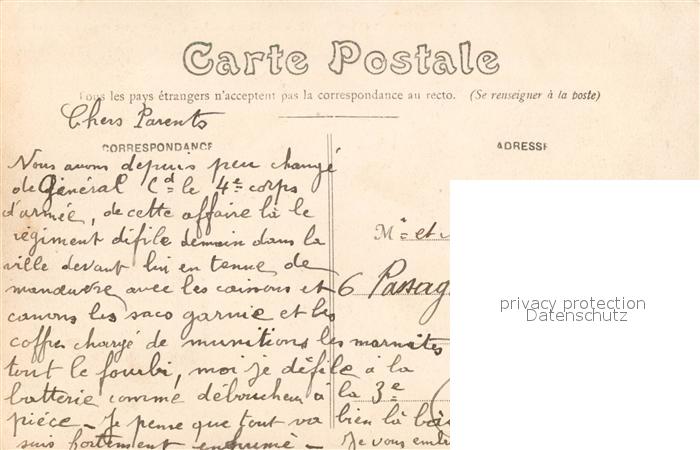 Carte Postale
Tous les pays étrangers n'acceptent pas la correspondance au recto. (Se renseigner à la poste)
Chers Parents
CORRESPONDANCE
Nous avons depuis peu changé
de Général Cd le 4e corps
d'armée, de cette affaire là le
régiment défile demain dans la
ville devant lui en tenue de
manœuvre avec les caissons et
canons les sacs garnie et les
coffres chargé de munitions les marmites
tout le fourbi, moi je défile à la
batterie comme déboucheur à la 3e
pièce - Je pense que tout va bien là bas
suis fortement enrhumé - Je vous emb
ADRESSE
Mr et
6 Passag
privacy protection
Datenschutz